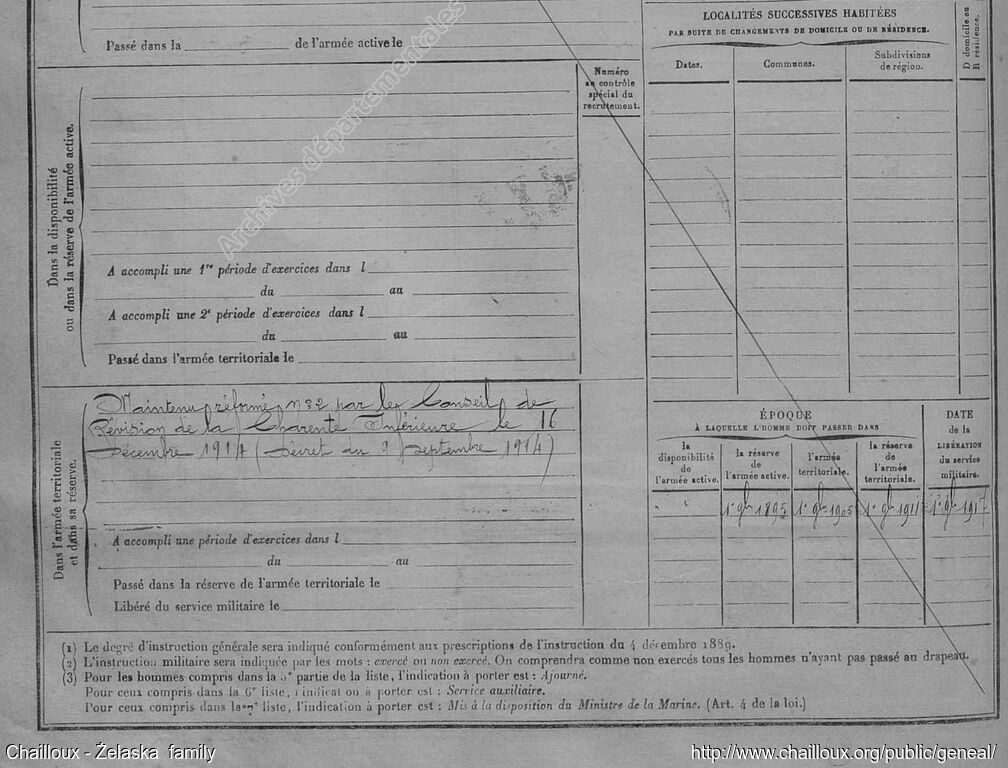 Passé dans la de l'armée active le
Archives départementales
Dans la disponibilité
ou dans la réserve de l'armée active.
Numéro
au contrôle
spécial du
recrutement.
A accompli une 1re période d'exercices dans l
du au
A accompli une 2e période d'exercices dans l
du au
Passé dans l'armée territoriale le
Dans l'armée territoriale
et dans sa réserve.
Maintenu réformé n°2 par le Conseil de
Révision de la Charente Inférieure le 16
Décembre 1914 (Décret du 9 Septembre 1914)
A accompli une période d'exercices dans l
du au
Passé dans la réserve de l'armée territoriale le
Libéré du service militaire le
LOCALITÉS SUCCESSIVES HABITÉES
PAR SUITE DE CHANGEMENTS DE DOMICILE OU DE RÉSIDENCE.
Dates.
Communes.
Subdivisions
de région.
D domicile ou
R résidence.
ÉPOQUE
À LAQUELLE L'HOMME DOIT PASSER DANS
la
disponibilité
de
l'armée active.
la réserve
de
l'armée active.
l'armée
territoriale.
la réserve
de
l'armée
territoriale.
DATE
de la
LIBÉRATION
du service
militaire.
1er 9bre 1895 1er 9bre 1905 1er 9bre 1911 1er 9bre 1917
(1) Le degré d'instruction générale sera indiqué conformément aux prescriptions de l'instruction du 4 décembre 1889.
(2) L'instruction militaire sera indiquée par les mots : exercé ou non exercé. On comprendra comme non exercés tous les hommes n'ayant pas passé au drapeau.
(3) Pour les hommes compris dans la 5e partie de la liste, l'indication à porter est : Ajourné.
Pour ceux compris dans la 6e liste, l'indication à porter est : Service auxiliaire.
Pour ceux compris dans la 7e liste, l'indication à porter est : Mis à la disposition du Ministre de la Marine. (Art. 4 de la loi.)
Chailloux - Żelaska family
http://www.chailloux.org/public/geneal/